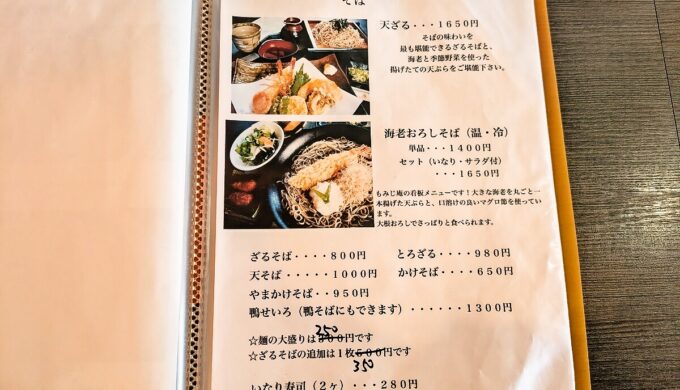 そば
天ざる・・・1650円
そばの味わいを
最も堪能できるざるそばと、
海老と季節野菜を使った
揚げたての天ぷらをご堪能下さい。
海老おろしそば（温・冷）
単品・・・1400円
セット（いなり・サラダ付）
・・・1650円
もみじ庵の看板メニューです！大きな海老を丸ごと一
本揚げた天ぷらと、口溶けの良いマグロ節を使ってい
ます。
大根おろしでさっぱりと食べられます。
ざるそば・・・・800円 とろざる・・・・980円
天そば・・・・・1000円 かけそば・・・・650円
やまかけそば・・950円
鴨せいろ（鴨そばにもできます）・・・・・・1300円
350
☆麺の大盛りは300円です
☆ざるそばの追加は1枚500円です
350
いなり寿司（2ヶ）・・・280円